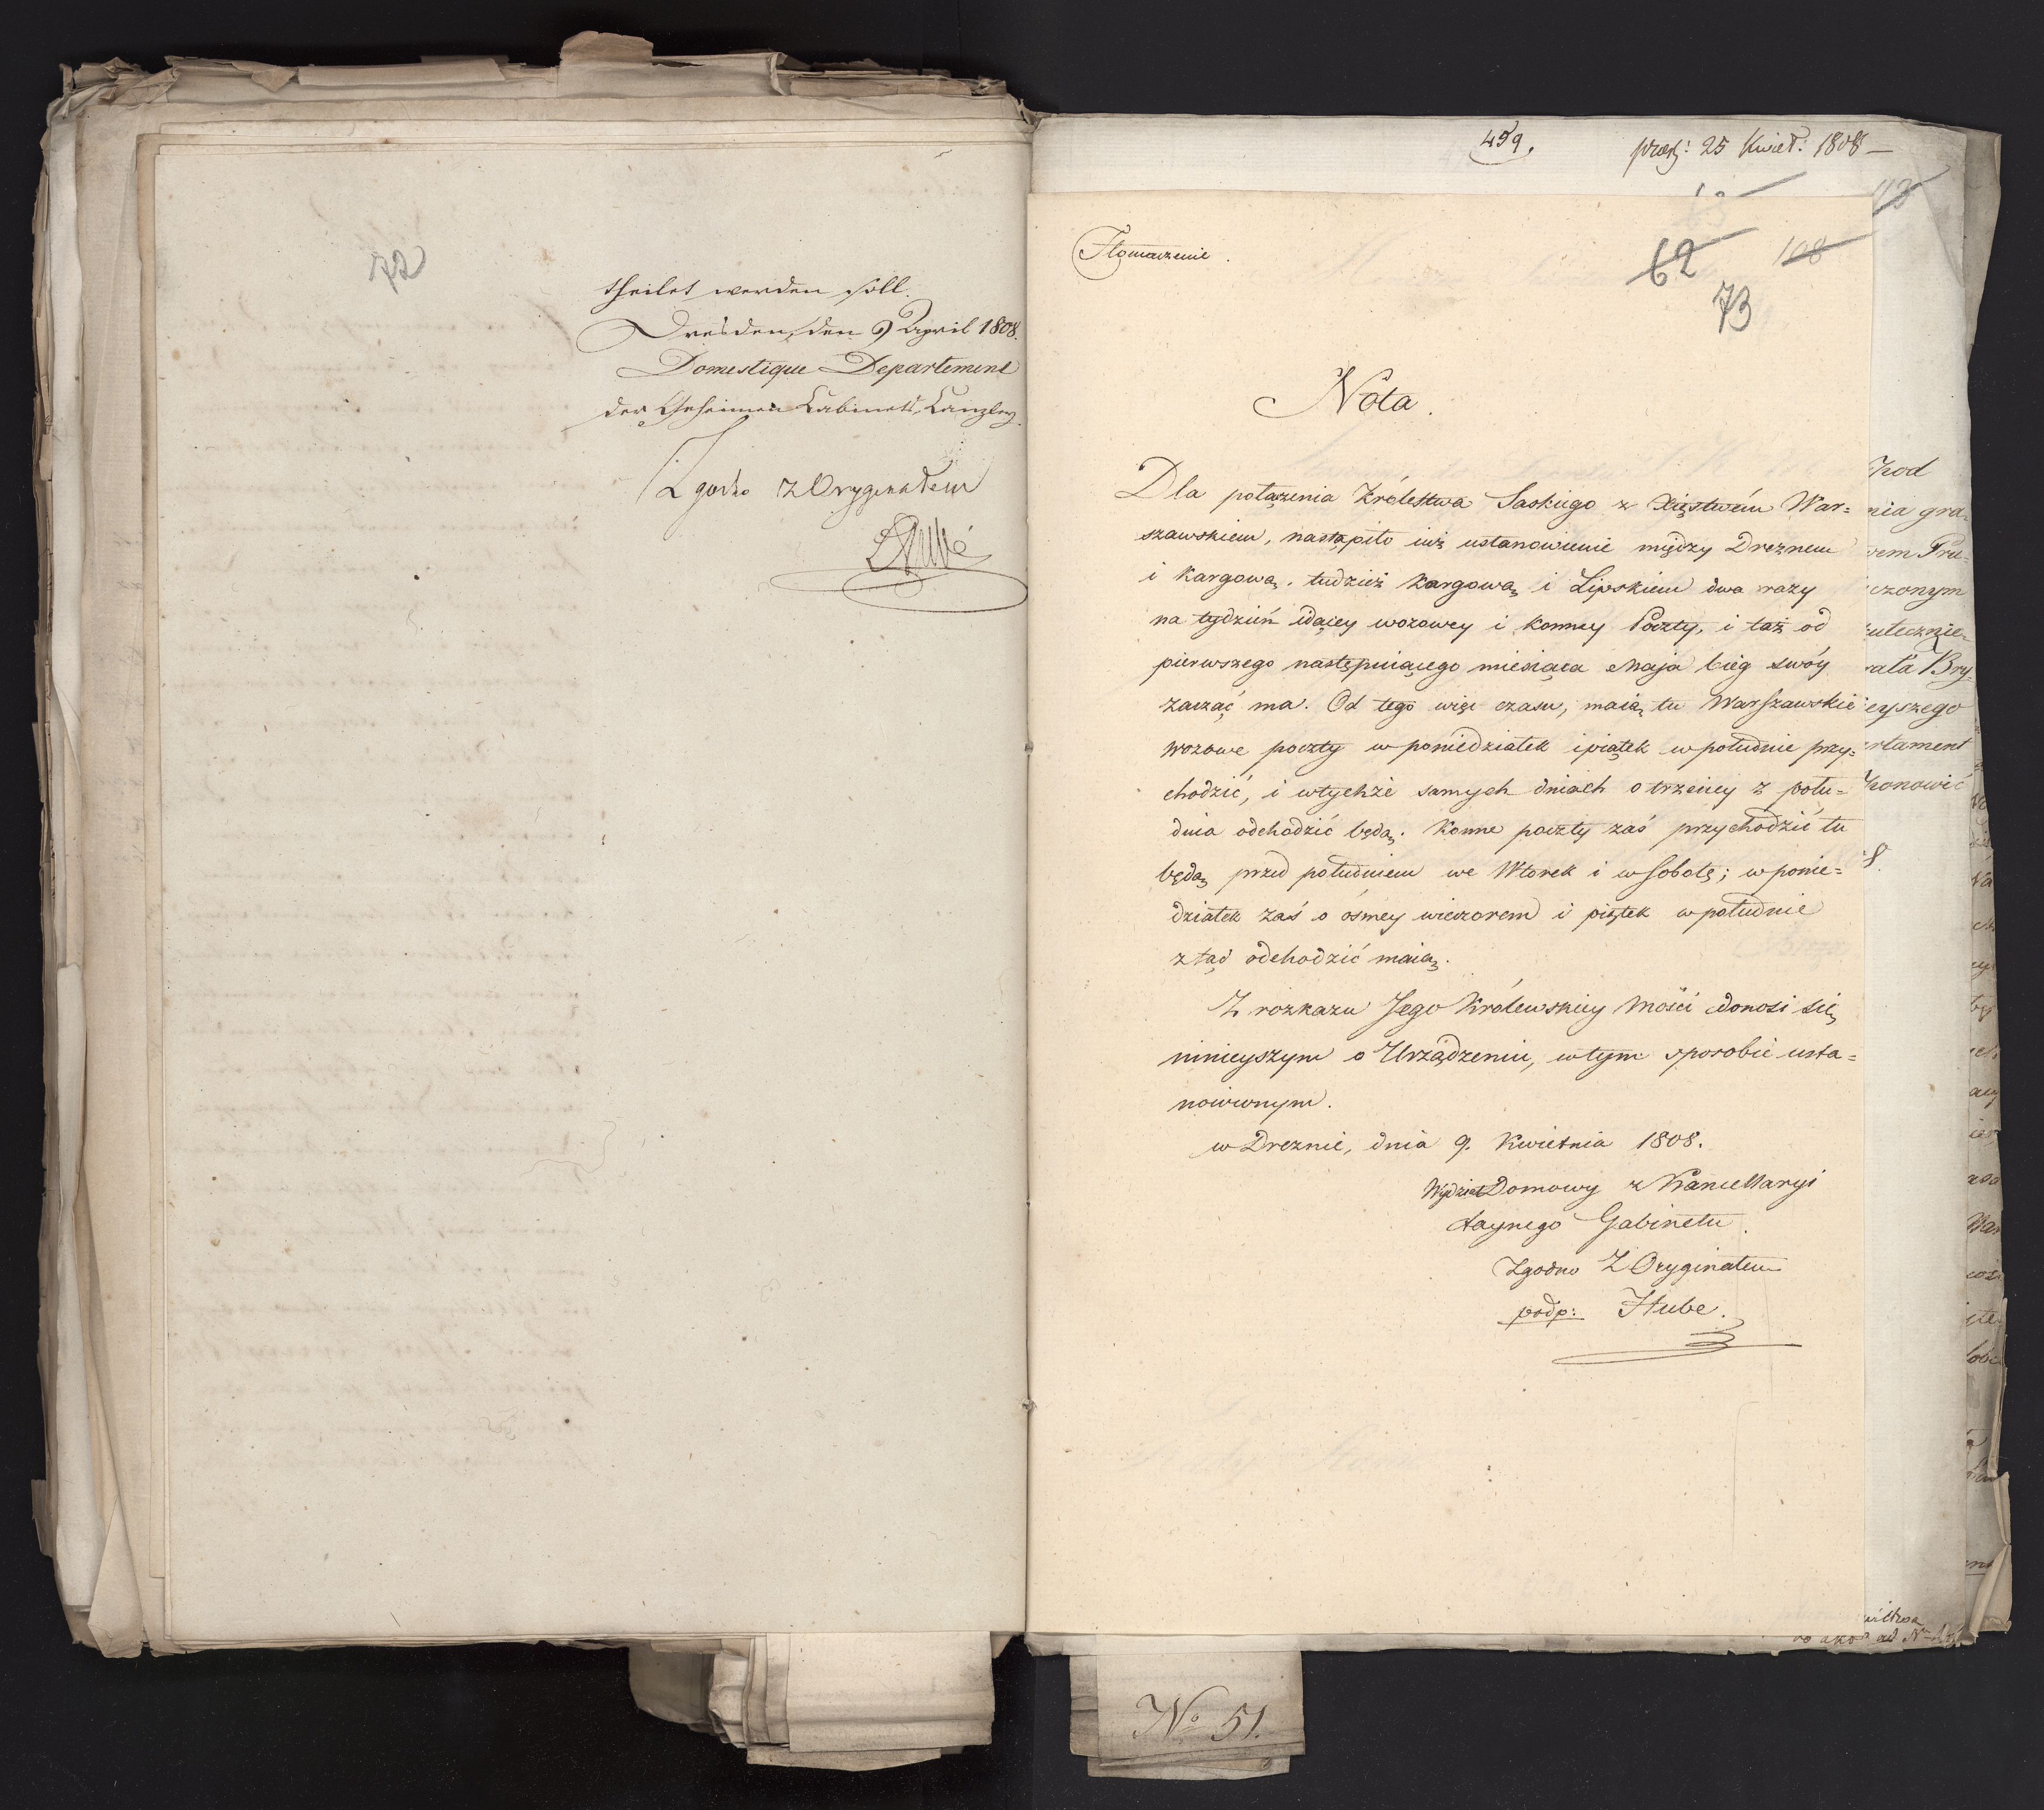 72
theilet werden soll.
Dresden, den 9 April 1808.
Domestique Departement
der Geheimen Cabinets, Canzley.
Zgodno z Oryginałem
Hube
459.
præs: 25 Kwiet: 1808 —
113
62
108
73
Tłomaczenie.
Nota.
Dla połączenia Królestwa Saskiego z Xięstwem War=
szawskiem, nastąpiło iuż ustanowienie między Dreznem
i Kargową, tudzież Kargową i Lipskiem dwa razy
na tydzień idącey wozowey i konney Poczty, i taż od
pierwszego następuiącego miesiąca Maja bieg swóy
zacząć ma. Od tego więc czasu, maią tu Warszawskie
wozowe poczty w poniedziałek i piątek w południe przy=
chodzić, i w tychże samych dniach o trzeciey z połu=
dnia odchodzić będą. Konne poczty zaś przychodzić tu
będą przed południem we Wtorek i w Sobotę; w ponie=
działek zaś o ósmey wieczorem i piątek w południe
ztąd odchodzić maią.
Z rozkazu Jego Królewskiey Mości donosi się
ninieyszym o Urządzeniu, w tym sposobie usta=
nowionym.
w Dreznie, dnia 9. Kwietnia 1808.
Wydział Domowy z Kancellaryi
taynego Gabinetu.
Zgodno Z Oryginałem
podp: Hube.
nia gra=
czonym
Bry
eyszego
rtament
nowić
No 51.